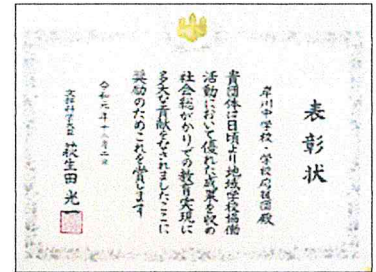 表彰状
岸川中学校・学校応援団殿
貴団体は日頃より地域学校協働
活動において優れた成果を収め
社会総がかりでの教育実現に
多大な貢献をなされましたことに
奨励のためこれを賞します
令和元年十二月二日
文部科学大臣 萩生田光一